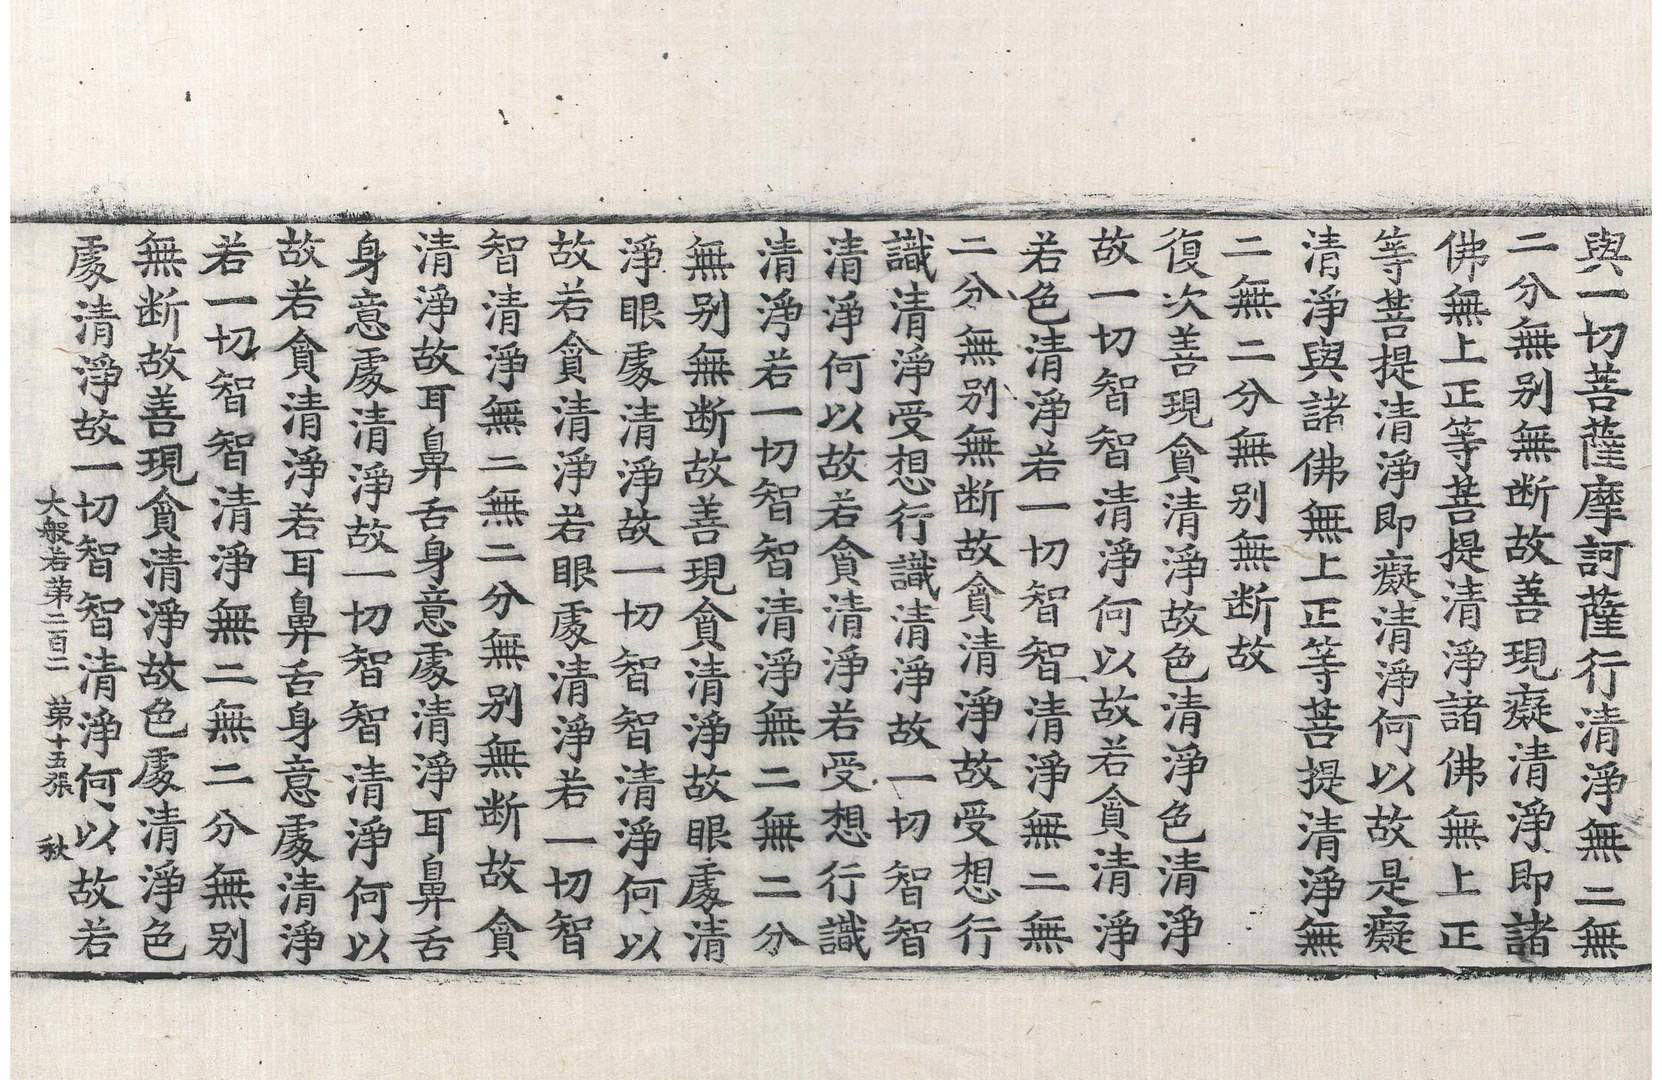 與一切菩薩摩訶薩行清淨無二無
二分無别無断故善現癡清淨即諸
佛無上正等菩提清淨諸佛無上正
等菩提清淨即癡清淨何以故是癡
清淨與諸佛無上正等菩提清淨無
二無二分無别無断故
復次善現貪清淨故色清淨色清淨
故一切智智清淨何以故若貪清淨
若色清淨若一切智智清淨無二無
二分無别無断故貪清淨故受想行
識清淨受想行識清淨故一切智智
清淨何以故若貪清淨若受想行識
清淨若一切智智清淨無二無二分
無别無断故善現貪清淨故眼處清
淨眼處清淨故一切智智清淨何以
故若貪清淨若眼處清淨若一切智
智清淨無二無二分無别無断故貪
清淨故耳鼻舌身意處清淨耳鼻舌
身意處清淨故一切智智清淨何以
故若貪清淨若耳鼻舌身意處清淨
若一切智智清淨無二無二分無别
無断故善現貪清淨故色處清淨色
處清淨故一切智智清淨何以故若
大般若第二百二 第十五張 秋